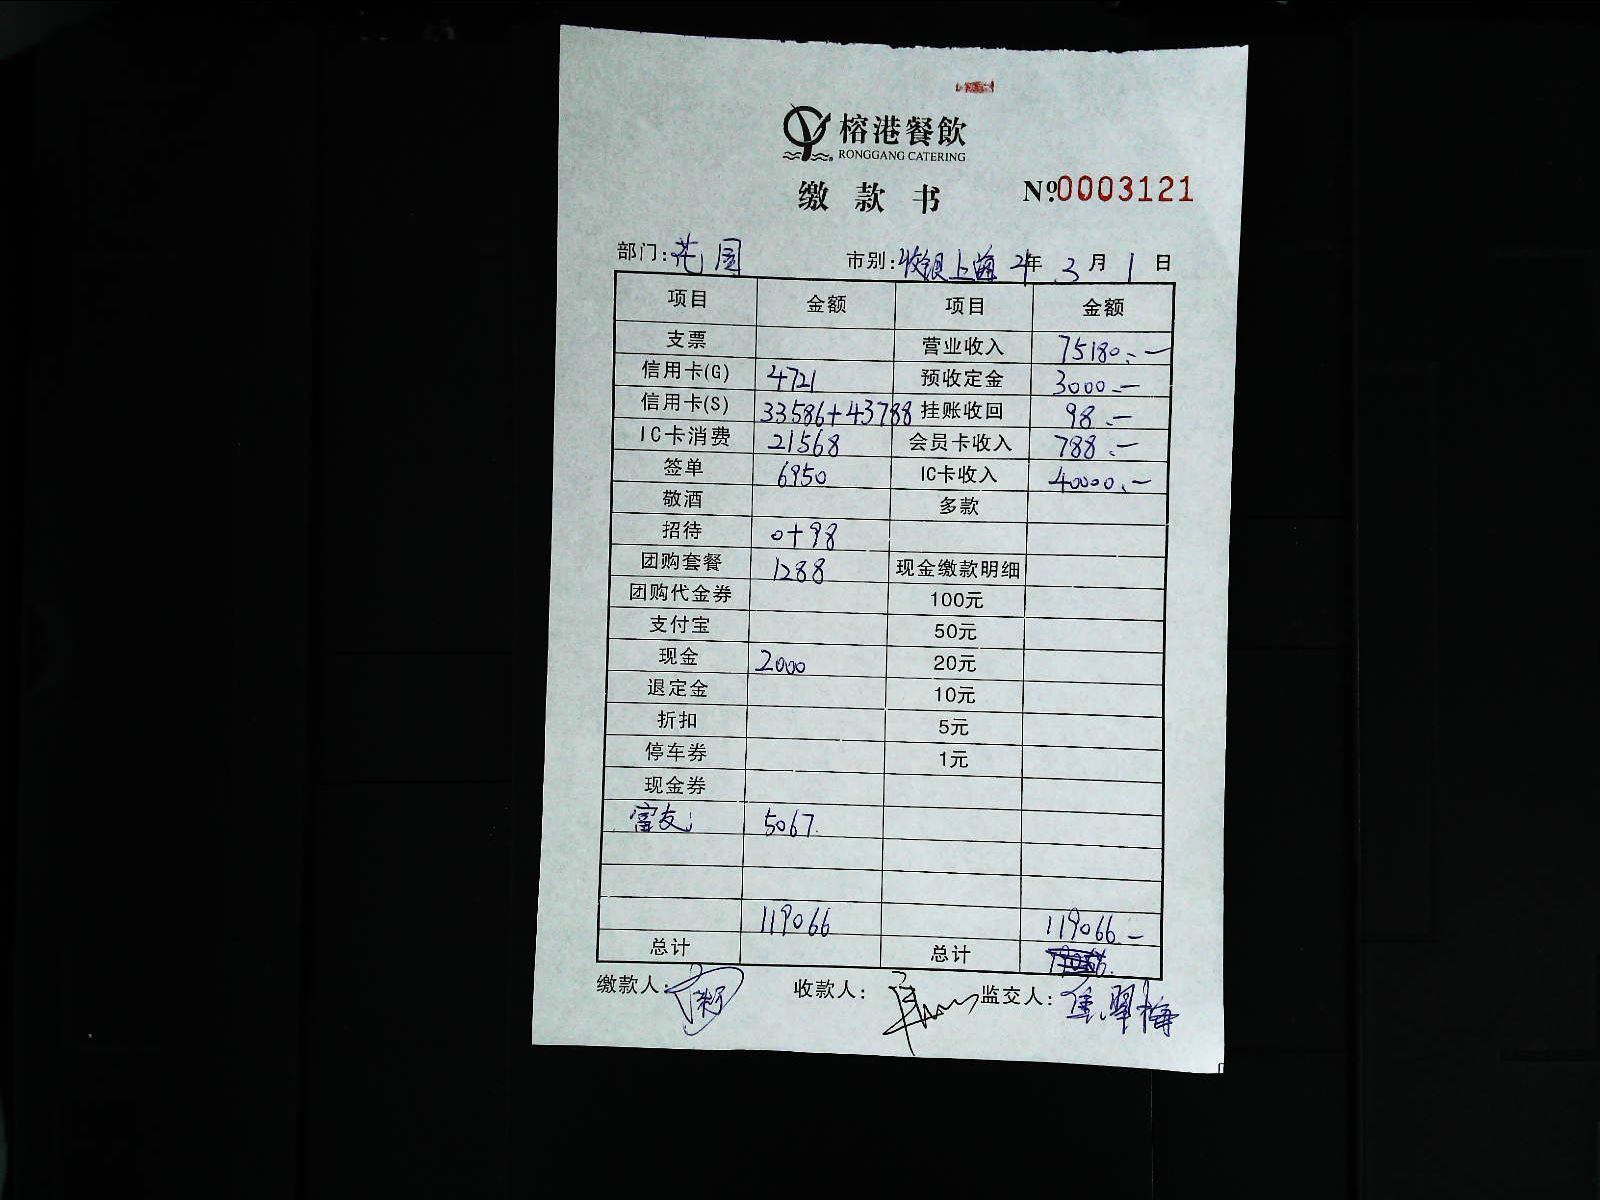 榕港餐飲
RONGGANG CATERING
缴款书 №0003121
部门:花园 市别:收银上海 21年 3月 1日
项目 金额 项目 金额
支票 营业收入 75180.-
信用卡(G) 4721 预收定金 3000.-
信用卡(S) 33586+43788 挂账收回 98.-
IC卡消费 21568 会员卡收入 788.-
签单 6950 IC卡收入 40000.-
敬酒 多款
招待 0+98
团购套餐 1288 现金缴款明细
团购代金券 100元
支付宝 50元
现金 2000 20元
退定金 10元
折扣 5元
停车券 1元
现金券
富友: 5067.
119066 119066.-
总计 总计
缴款人: 收款人: 监交人: